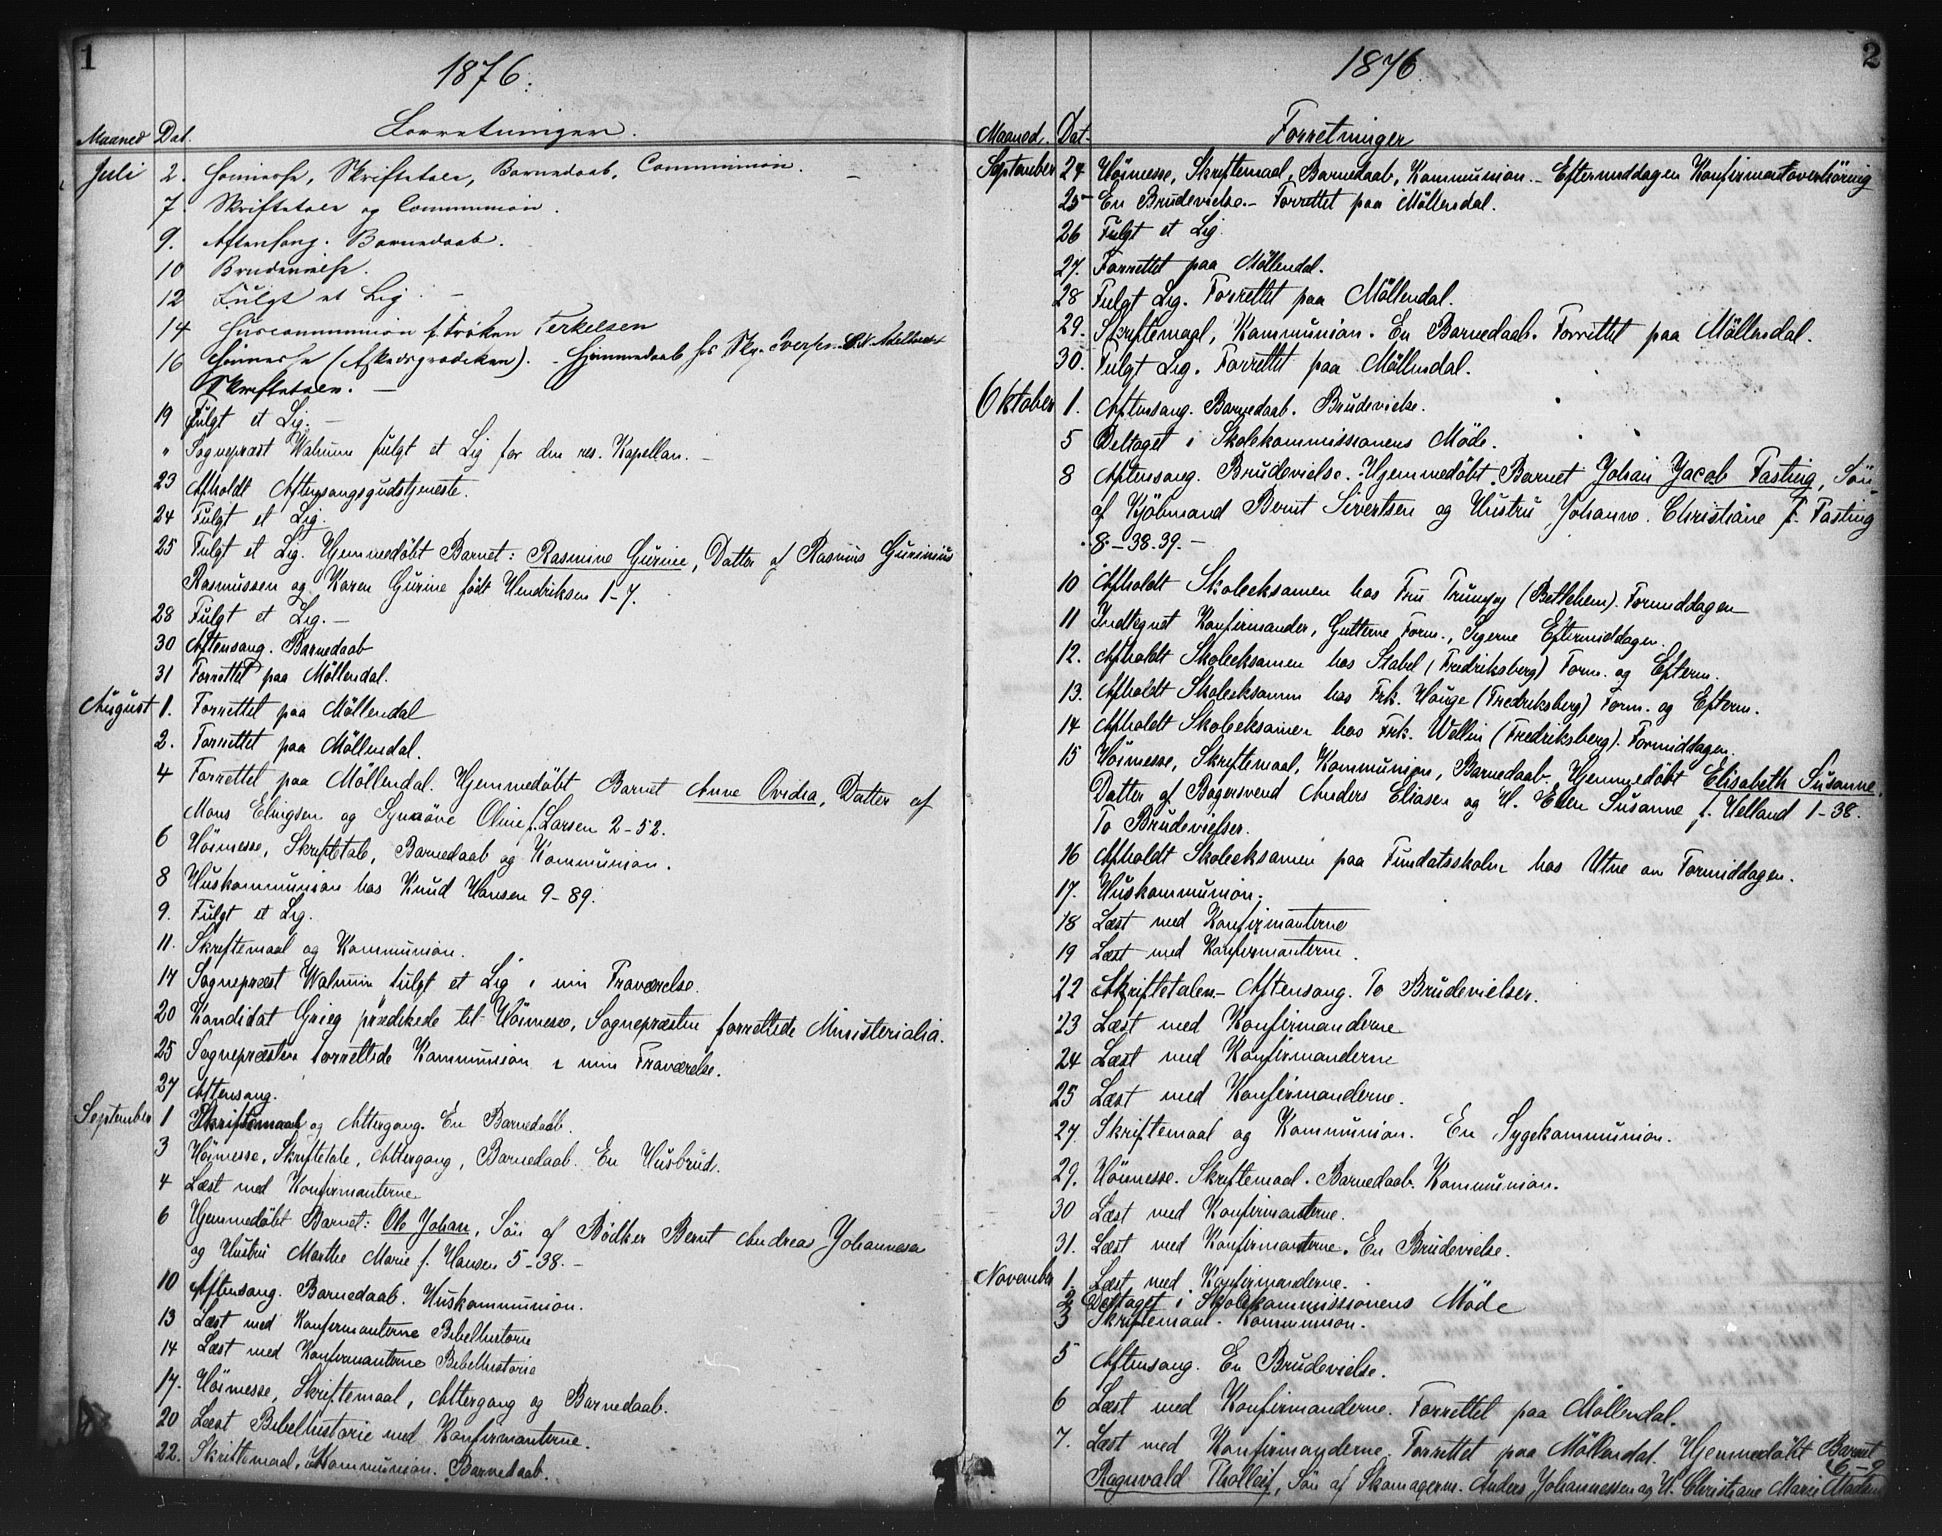 1
1876.
Maaned Dat. Forretninger.
Juli 2. Høimesse, Skriftetale, Barnedaab, Communion.
7. Skriftetale og Communion.
9. Aftensang. Barnedaab.
10 Brudevielse.
12 Fulgt et Lig.
14 Huscommunion f. Frøken Terkelsen
16 Høimesse (Afskedsprædiken). - Hjemmedaab hos
Skriftetale. -
19 Fulgt et Lig. -
" Sognepræst Walnum fulgt et Lig for den res. Kapellan. -
23 Afholdt Aftensangsgudstjeneste.
24 Fulgt et Lig.
25 Fulgt et Lig. Hjemmedöbt Barnet: Rasmine Gurine, Datter af Rasmus Gurinius
Rasmussen og Karen Gurine født Hendriksen 1-7.
28 Fulgt et Lig. -
30 Aftensang. Barnedaab
31 Forrettet paa Möllendal.
August 1. Forrettet paa Möllendal
2. Forrettet paa Möllendal.
4 Forrettet paa Möllendal. Hjemmedöbt Barnet Anne Ovidia, Datter af
Mons Elingsen og Synnöve Oline f. Larsen 2-52.
6 Höimesse, Skriftetale, Barnedaab og Kommunion.
8 Huskommunion hos Knud Hansen 9-89.
9. Fulgt et Lig.
11. Skriftemaal og Kommunion.
17 Sognepræst Walnum fulgt et Lig i min Fraværelse.
20 Kandidat Grieg prædikede til Höimesse, Sognepræsten forrettede Ministerialia.
25 Sognepræsten forrettede Kommunion i min Fraværelse.
27 Aftensang.
September 1 Skriftemaal og Altergang. En Barnedaab.
3 Höimesse, Skriftetale, Altergang, Barnedaab. En Husbrud.
4 Læst med Konfirmanterne
6 Hjemmedöbt Barnet: Ole Johan, Sön af Bödker Bernt Andreas Johannesen
og Hustru Marthe Marie f. Hansen 5-38. -
10 Aftensang. Barnedaab. Huskommunion.
13 Læst med Konfirmanterne Bibelhistorie
14 Læst med Konfirmanterne Bibelhistorie
17. Höimesse, Skriftemaal, Altergang og Barnedaab.
20 Læst Bibelhistorie med Konfirmanterne.
22. Skriftemaal, Kommunion. Barnedaab.
2
1876
Maaned. Dat. Forretninger
September 24 Höimesse, Skriftemaal, Barnedaab, Kommunion. - Eftermiddagen Konfirmantoverhöring
25 En Brudevielse. - Forrettet paa Möllendal.
26 Fulgt et Lig
27. Forrettet paa Möllendal.
28 Fulgt Lig. Forrettet paa Möllendal.
29. Skriftemaal, Kommunion. En Barnedaab. Forrettet paa Möllendal.
30. Fulgt Lig. Forrettet paa Möllendal.
Oktober 1. Aftensang. Barnedaab. Brudevielse.
5 Deltaget i Skolekommissionens Møde.
8 Aftensang. Brudevielse. Hjemmedöbt Barnet Johan Jacob Fasting, Sön
af Kjöbmand Bernt Sivertsen og Hustru Johanne Christiane f. Fasting
8-38.39. -
10 Afholdt Skoleeksamen hos Fru (Bethlehem). Formiddagen
11 Indtegnet Konfirmander, Gutterne Form., Pigerne Eftermiddagen.
12. Afholdt Skoleeksamen hos Stabel (Fredriksberg) Form. og Efterm.
13. Afholdt Skoleeksamen hos Frk. Hauge (Fredriksberg) Form. og Efterm.
14 Afholdt Skoleeksamen hos Frk. Wellin (Fredriksberg). Formiddagen.
15 Höimesse, Skriftemaal, Kommunion, Barnedaab. Hjemmedöbt Elisabeth Susanne,
Datter af Bagersvend Anders Eliasen og H. Ellen Susanne f. Helland 1-38.
To Brudevielser.
16 Afholdt Skoleeksamen paa Fundatsskolen hos Utne om Formiddagen.
17. Huskommunion.
18 Læst med Konfirmanterne
19 Læst med Konfirmanterne.
22 Skriftetalen - Aftensang. To Brudevielser.
23 Læst med Konfirmanderne
24 Læst med Konfirmanderne
25 Læst med Konfirmanderne.
27. Skriftemaal og Kommunion. En Sygekommunion.
29. Höimesse. Skriftemaal. Barnedaab. Kommunion.
30 Læst med Konfirmanterne.
31. Læst med Konfirmanterne. En Brudevielse.
November 1. Læst med Konfirmanderne.
2 Deltaget i Skolekommissionens Møde
3 Skriftemaal. Kommunion.
5 Aftensang. En Brudevielse.
6 Læst med Konfirmanderne. Forrettet paa Möllendal.
7. Læst med Konfirmanderne. Forrettet paa Möllendal. Hjemmedöbt Barnet
6-9
Ragnvald Tholleif, Sön af Skomagerm. Anders Johannessen og H. Christiane Marie Madsen